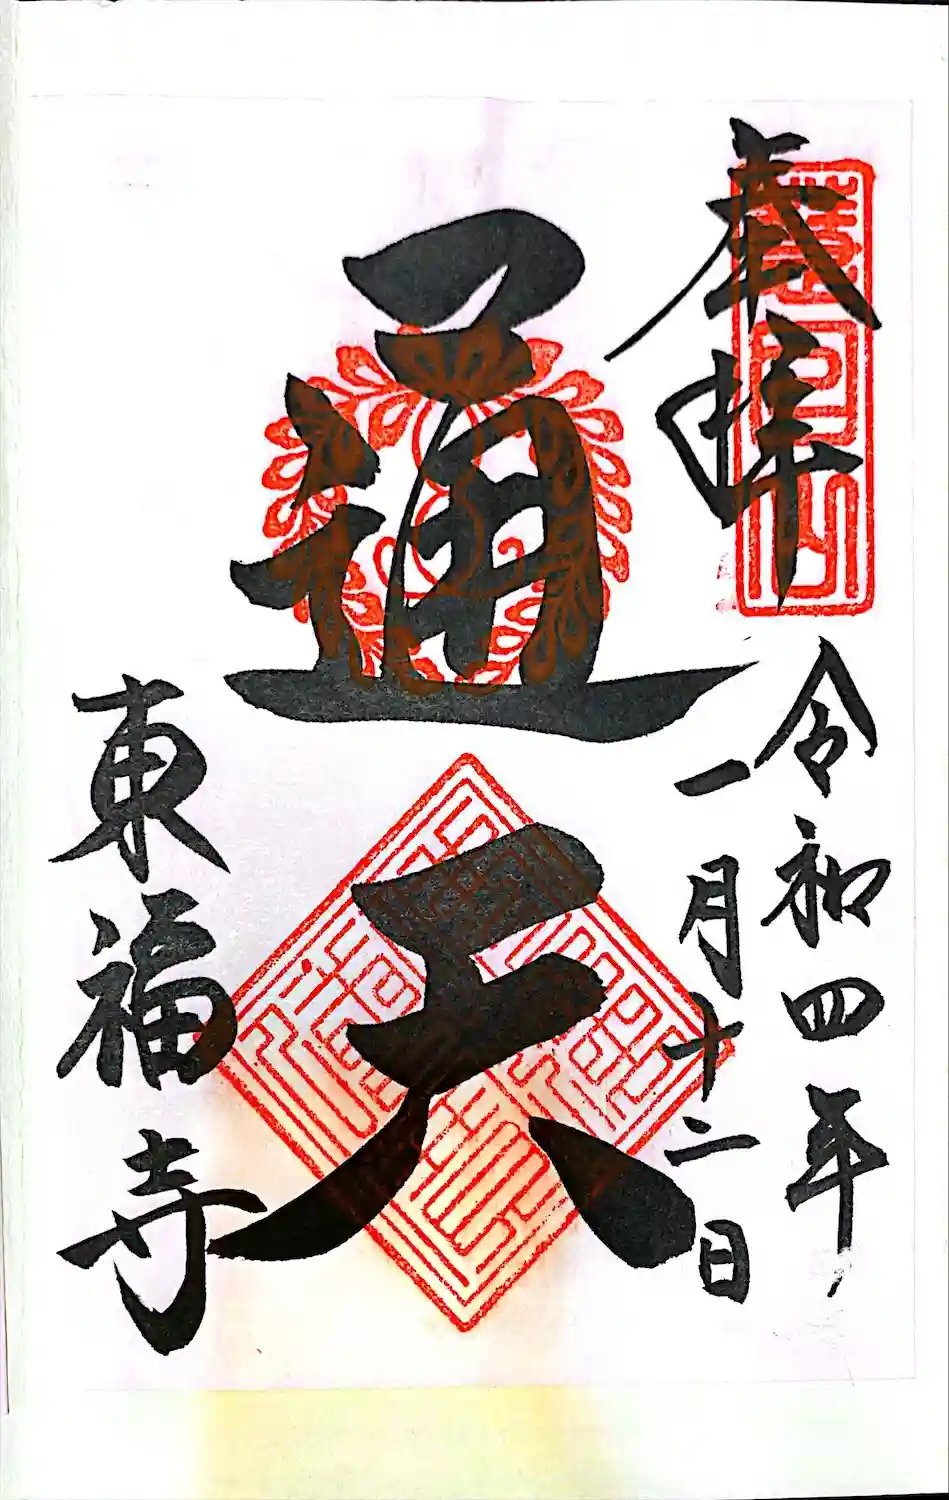 奉拝
令和四年
一月十二日
通天
東福寺